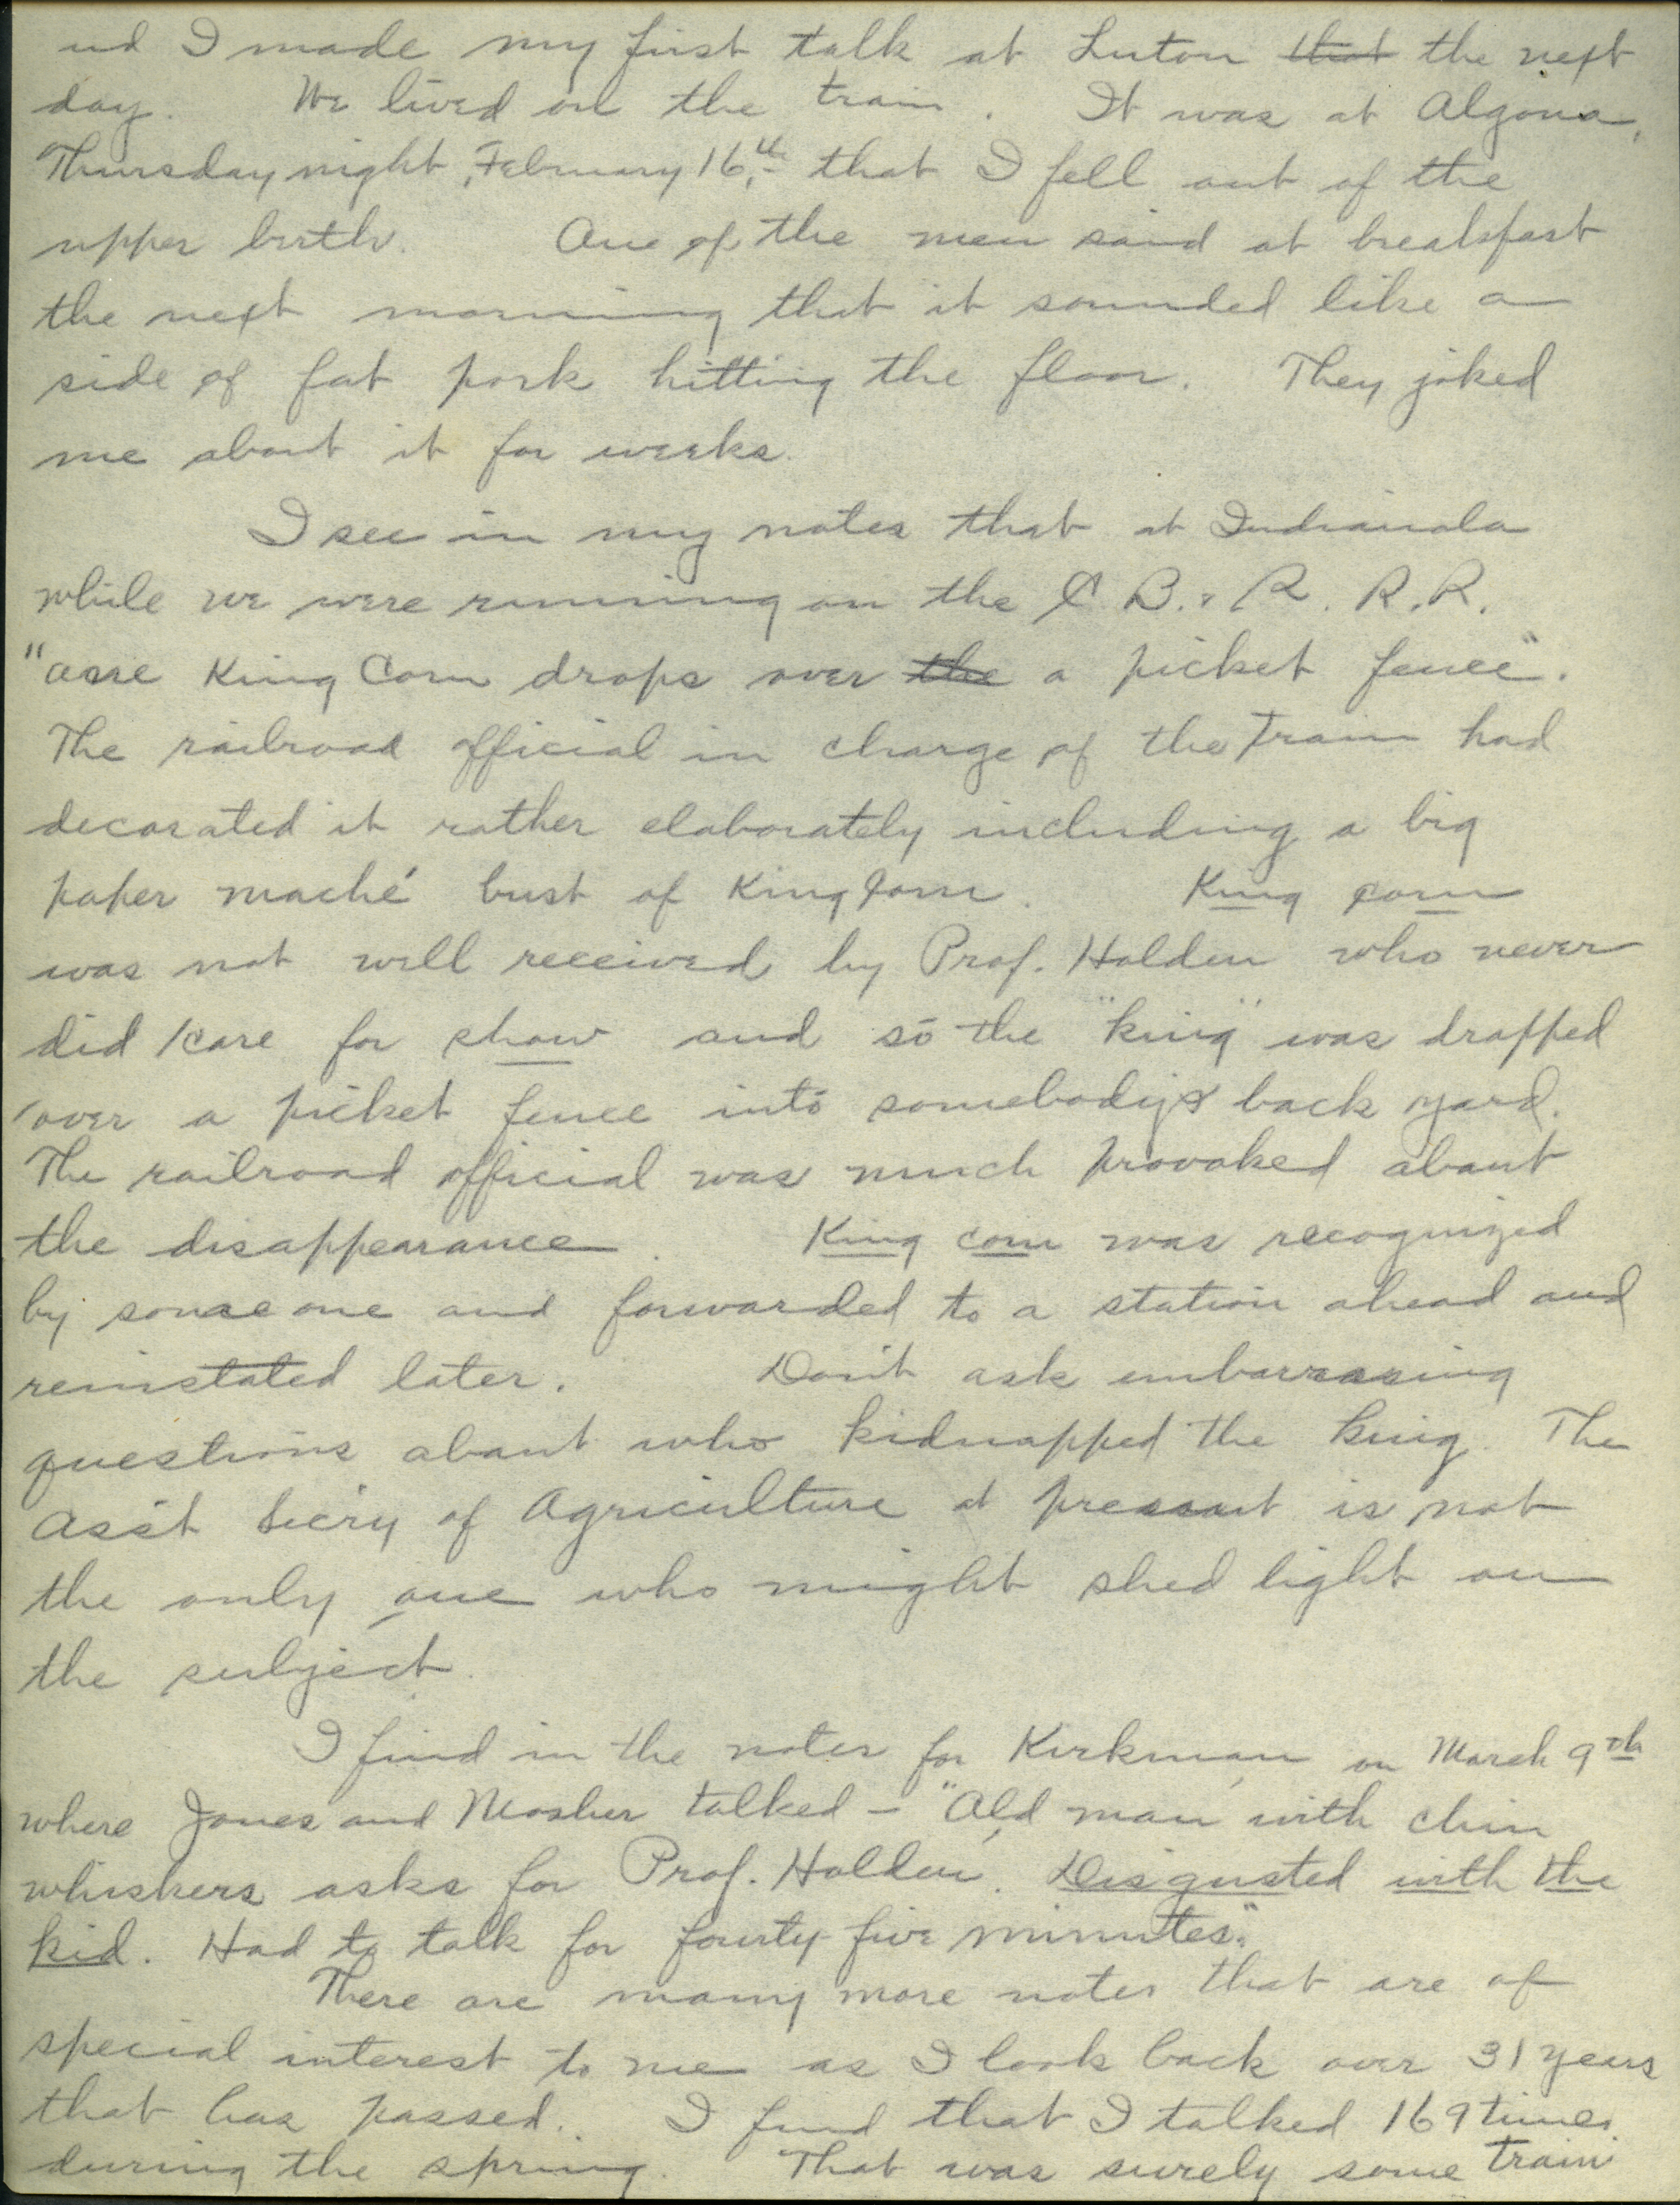 nd I made my first talk at Luton that the next
day. We lived on the train. It was at Algona,
Thursday night, February 16,th that I fell out of the
upper birth. One of the men said at breakfast
the next morning that it sounded like a
side of fat pork hitting the floor. They joked
me about it for weeks.
I see in my notes that at Indianola
while we were running on the C. B. & R. R.R.
"anse King Corn drops over the a picket fence".
The railroad official in charge of the Train had
decorated it rather elaborately including a big
paper maché bust of King Corn. King corn
was not well received by Prof. Holden who never
did care for show and so the "king" was dropped
over a picket fence into somebodys back yard.
The railroad official was much provoked about
the disappearance. King corn was recognized
by some one and forwarded to a station ahead and
reinstated later. Don't ask embarrassing
questions about who kidnapped the King. The
Ass't Sec'ry of Agriculture at present is not
the only one who might shed light on
the subject.
I find in the notes for Kirkman on March 9th
where Jones and Mosher talked — "Old man with chin
whiskers asks for Prof. Holden. Disgusted with the
kid. Had to talk for fourty-five minutes".
There are many more notes that are of
special interest to me as I look back over 31 years
that has passed. I find that I talked 169 times
during the spring. That was surely some train